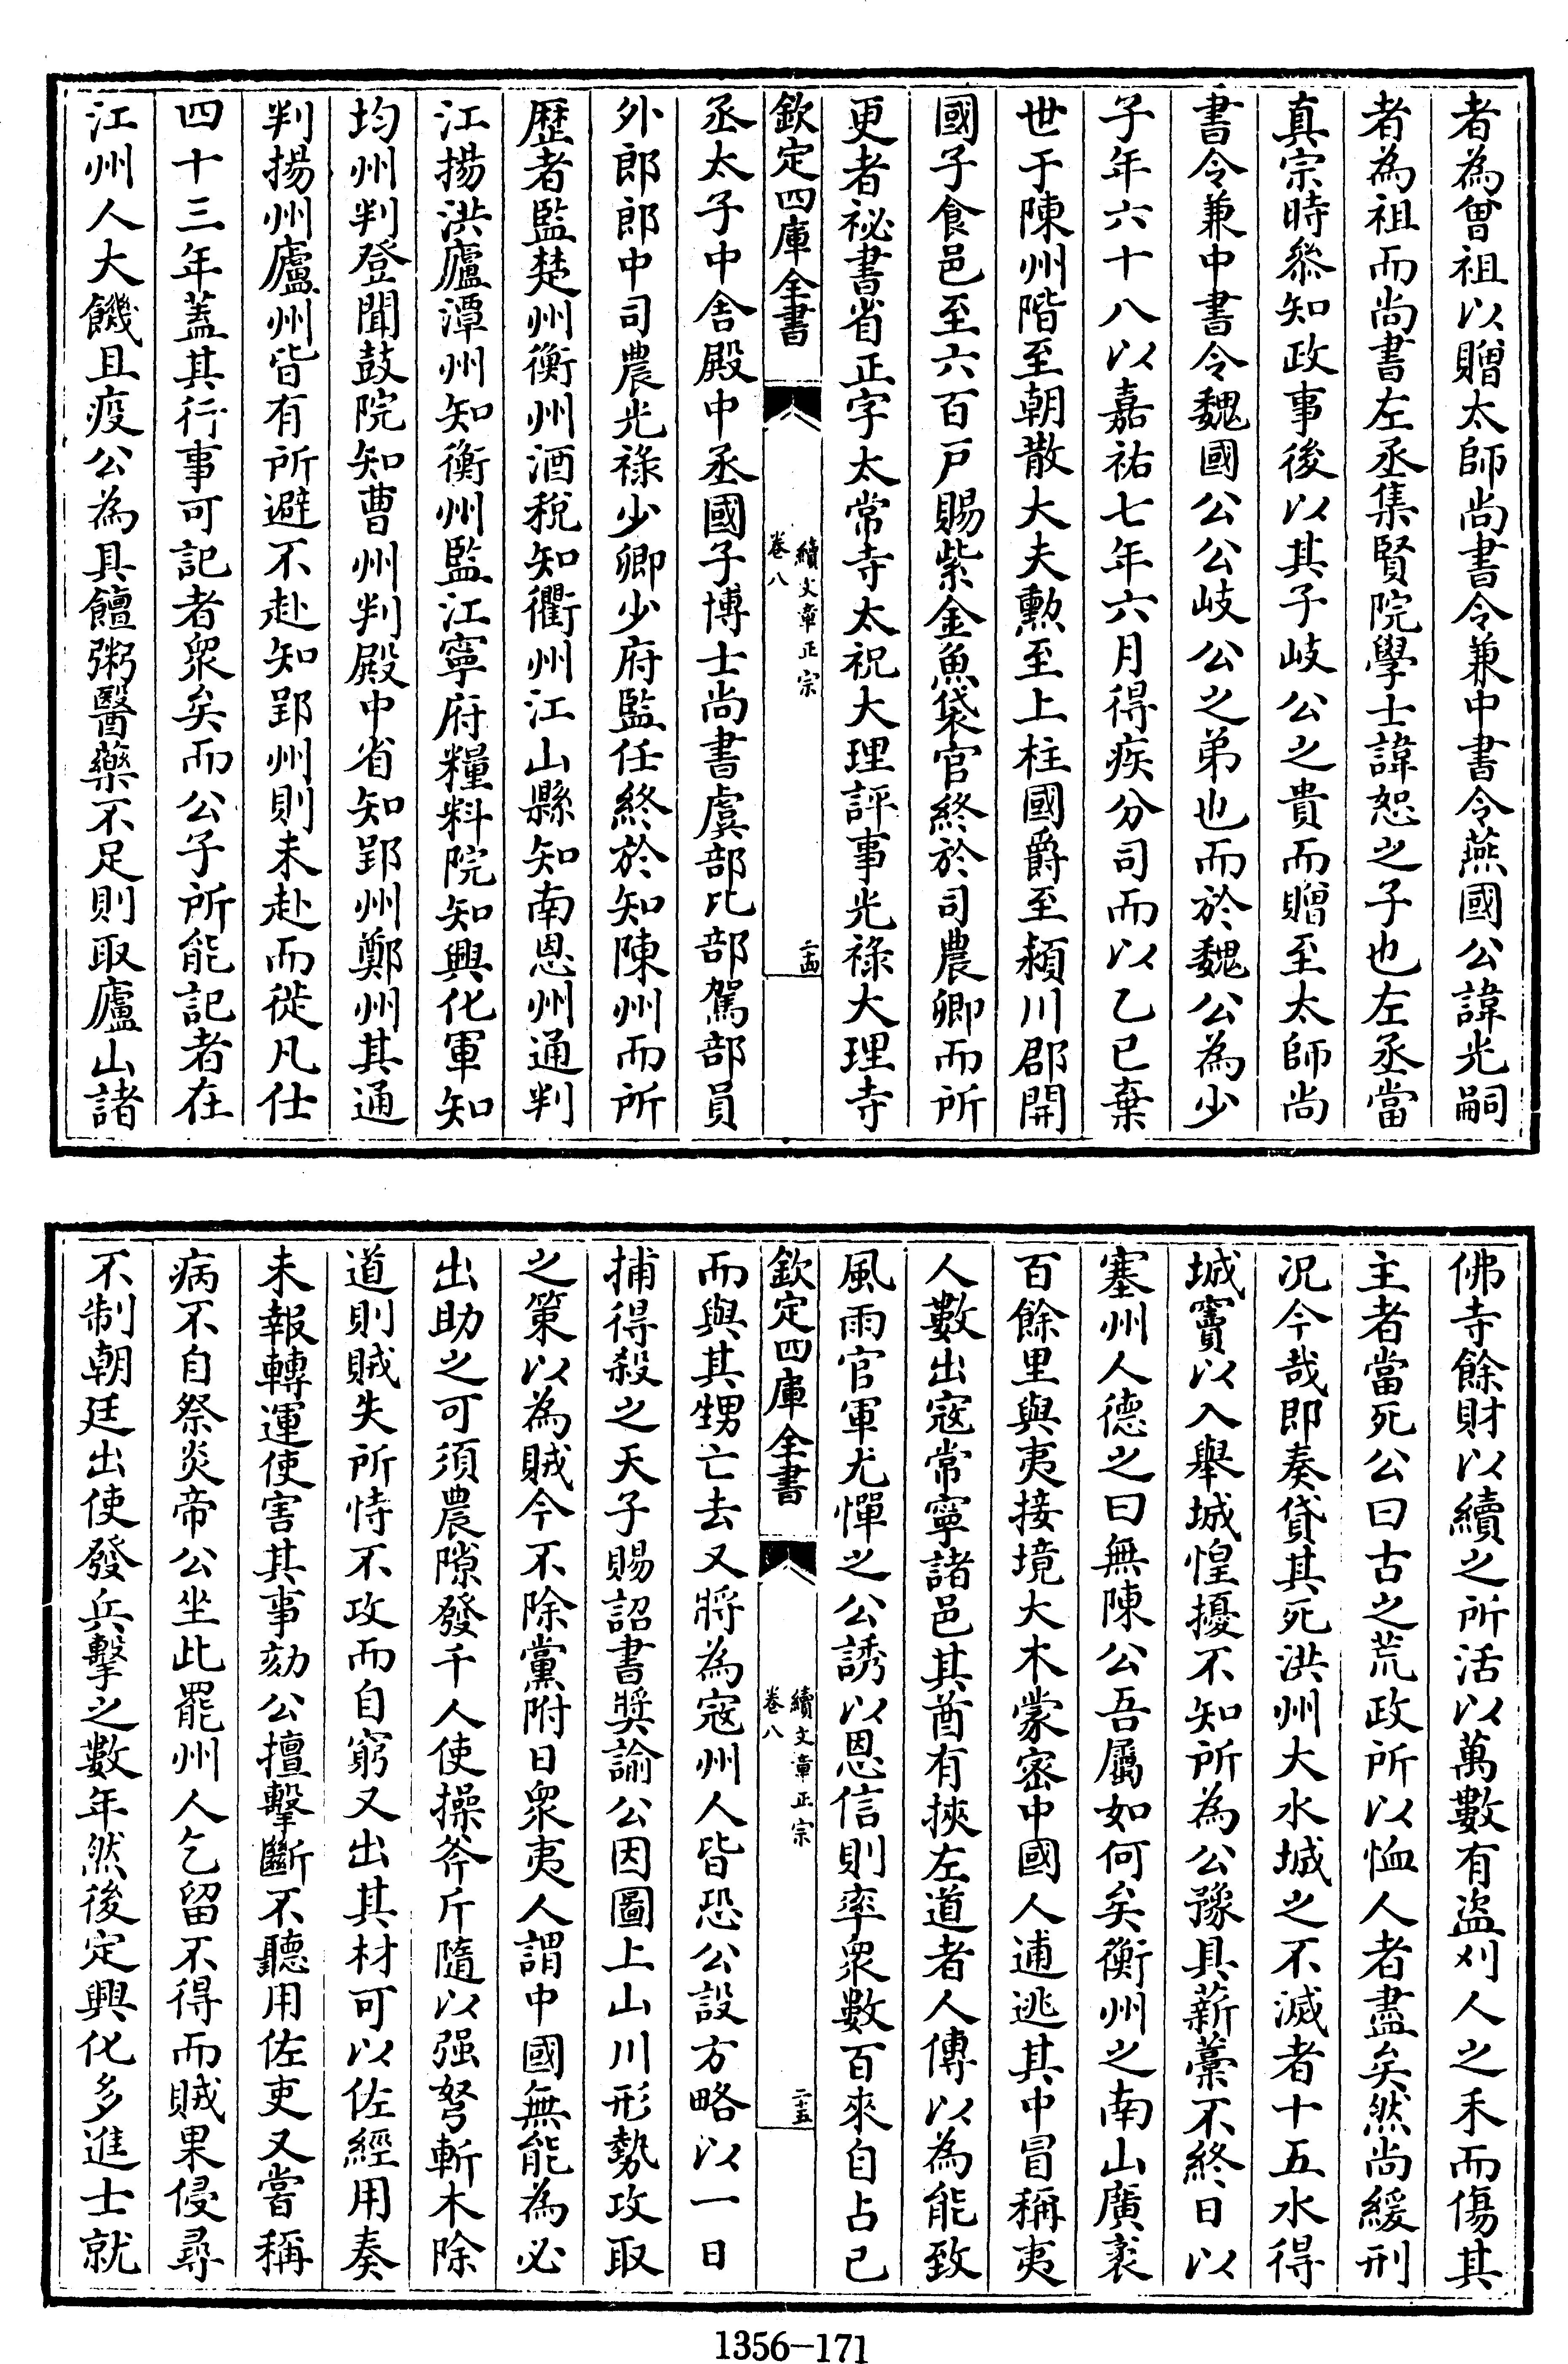 者為曾祖以贈太師尚書令兼中書令燕國公諱光嗣
者為祖而尚書左丞集賢院學士諱恕之子也左丞當
真宗時叅知政事後以其子岐公之貴而贈至太師尚
書令兼中書令魏國公公岐公之弟也而於魏公為少
子年六十八以嘉祐七年六月得疾分司而以乙巳棄
世于陳州階至朝散大夫勲至上柱國爵至潁川郡開
國子食邑至六百戶賜紫金魚袋官終於司農卿而所
更者祕書省正字太常寺太祝大理評事光祿大理寺
欽定四庫全書
續文章正宗
卷八
二十四
丞太子中舍殿中丞國子博士尚書虞部比部駕部員
外郎郎中司農光祿少卿少府監任終於知陳州而所
歷者監楚州衡州酒稅知衢州江山縣知南恩州通判
江揚洪廬潭州知衡州監江寧府糧料院知興化軍知
均州判登聞鼓院知曹州判殿中省知郢州鄭州其通
判揚州廬州皆有所避不赴知郢州則未赴而徙凡仕
四十三年蓋其行事可記者衆矣而公子所能記者在
江州人大饑且疫公為具饘粥醫藥不足則取廬山諸
佛寺餘財以續之所活以萬數有盜刈人之禾而傷其
主者當死公曰古之荒政所以恤人者盡矣然尚緩刑
況今哉即奏貸其死洪州大水城之不滅者十五水得
城竇以入舉城惶擾不知所為公豫具薪藁不終日以
塞州人德之曰無陳公吾屬如何矣衡州之南山廣袤
百餘里與夷接境大木蒙密中國人逋逃其中冒稱夷
人數出寇常寧諸邑其酋有挾左道者人傳以為能致
風雨官軍尤憚之公誘以恩信則率衆數百來自占已
欽定四庫全書
續文章正宗
卷八
二十五
而與其甥亡去又將為寇州人皆恐公設方略以一日
捕得殺之天子賜詔書奬諭公因圖上山川形勢攻取
之策以為賊今不除黨附日衆夷人謂中國無能為必
出助之可須農隙發千人使操斧斤隨以强弩斬木除
道則賊失所恃不攻而自窮又出其材可以佐經用奏
未報轉運使害其事劾公擅擊斷不聽用佐吏又嘗稱
病不自祭炎帝公坐此罷州人乞留不得而賊果侵尋
不制朝廷出使發兵擊之數年然後定興化多進士就
1356-171